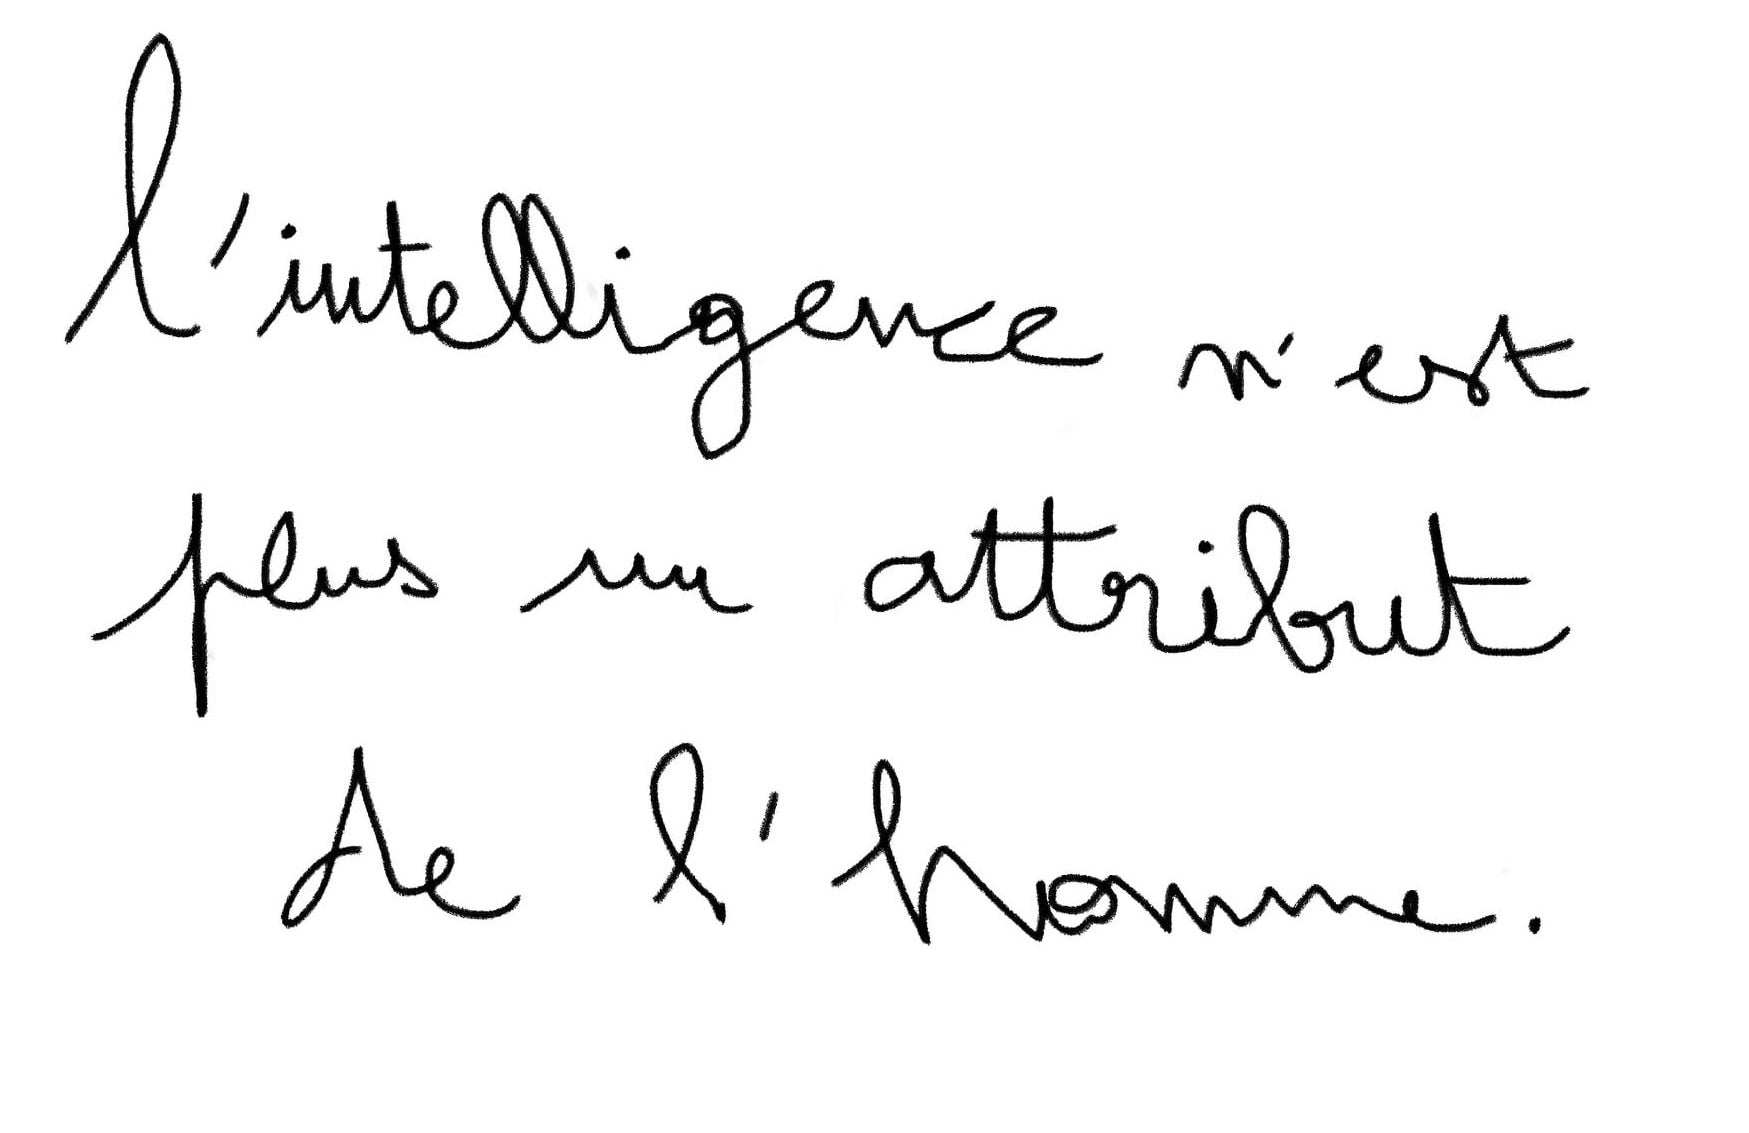 l'intelligence n'est
plus un attribut
de l'homme.